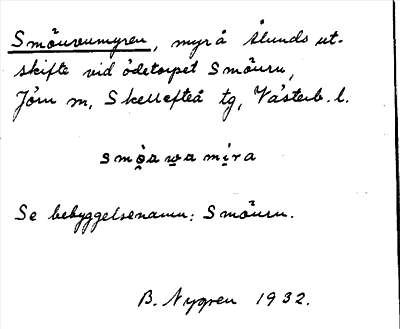 Smöuvumyren, myr å Ålunds ut-
skifte vid ödetorpet Smöuru,
Jörn sn, Skellefteå tg, Västerb. l.
Se bebyggelsenamn: Smöuru.
B. Nygren 1932.